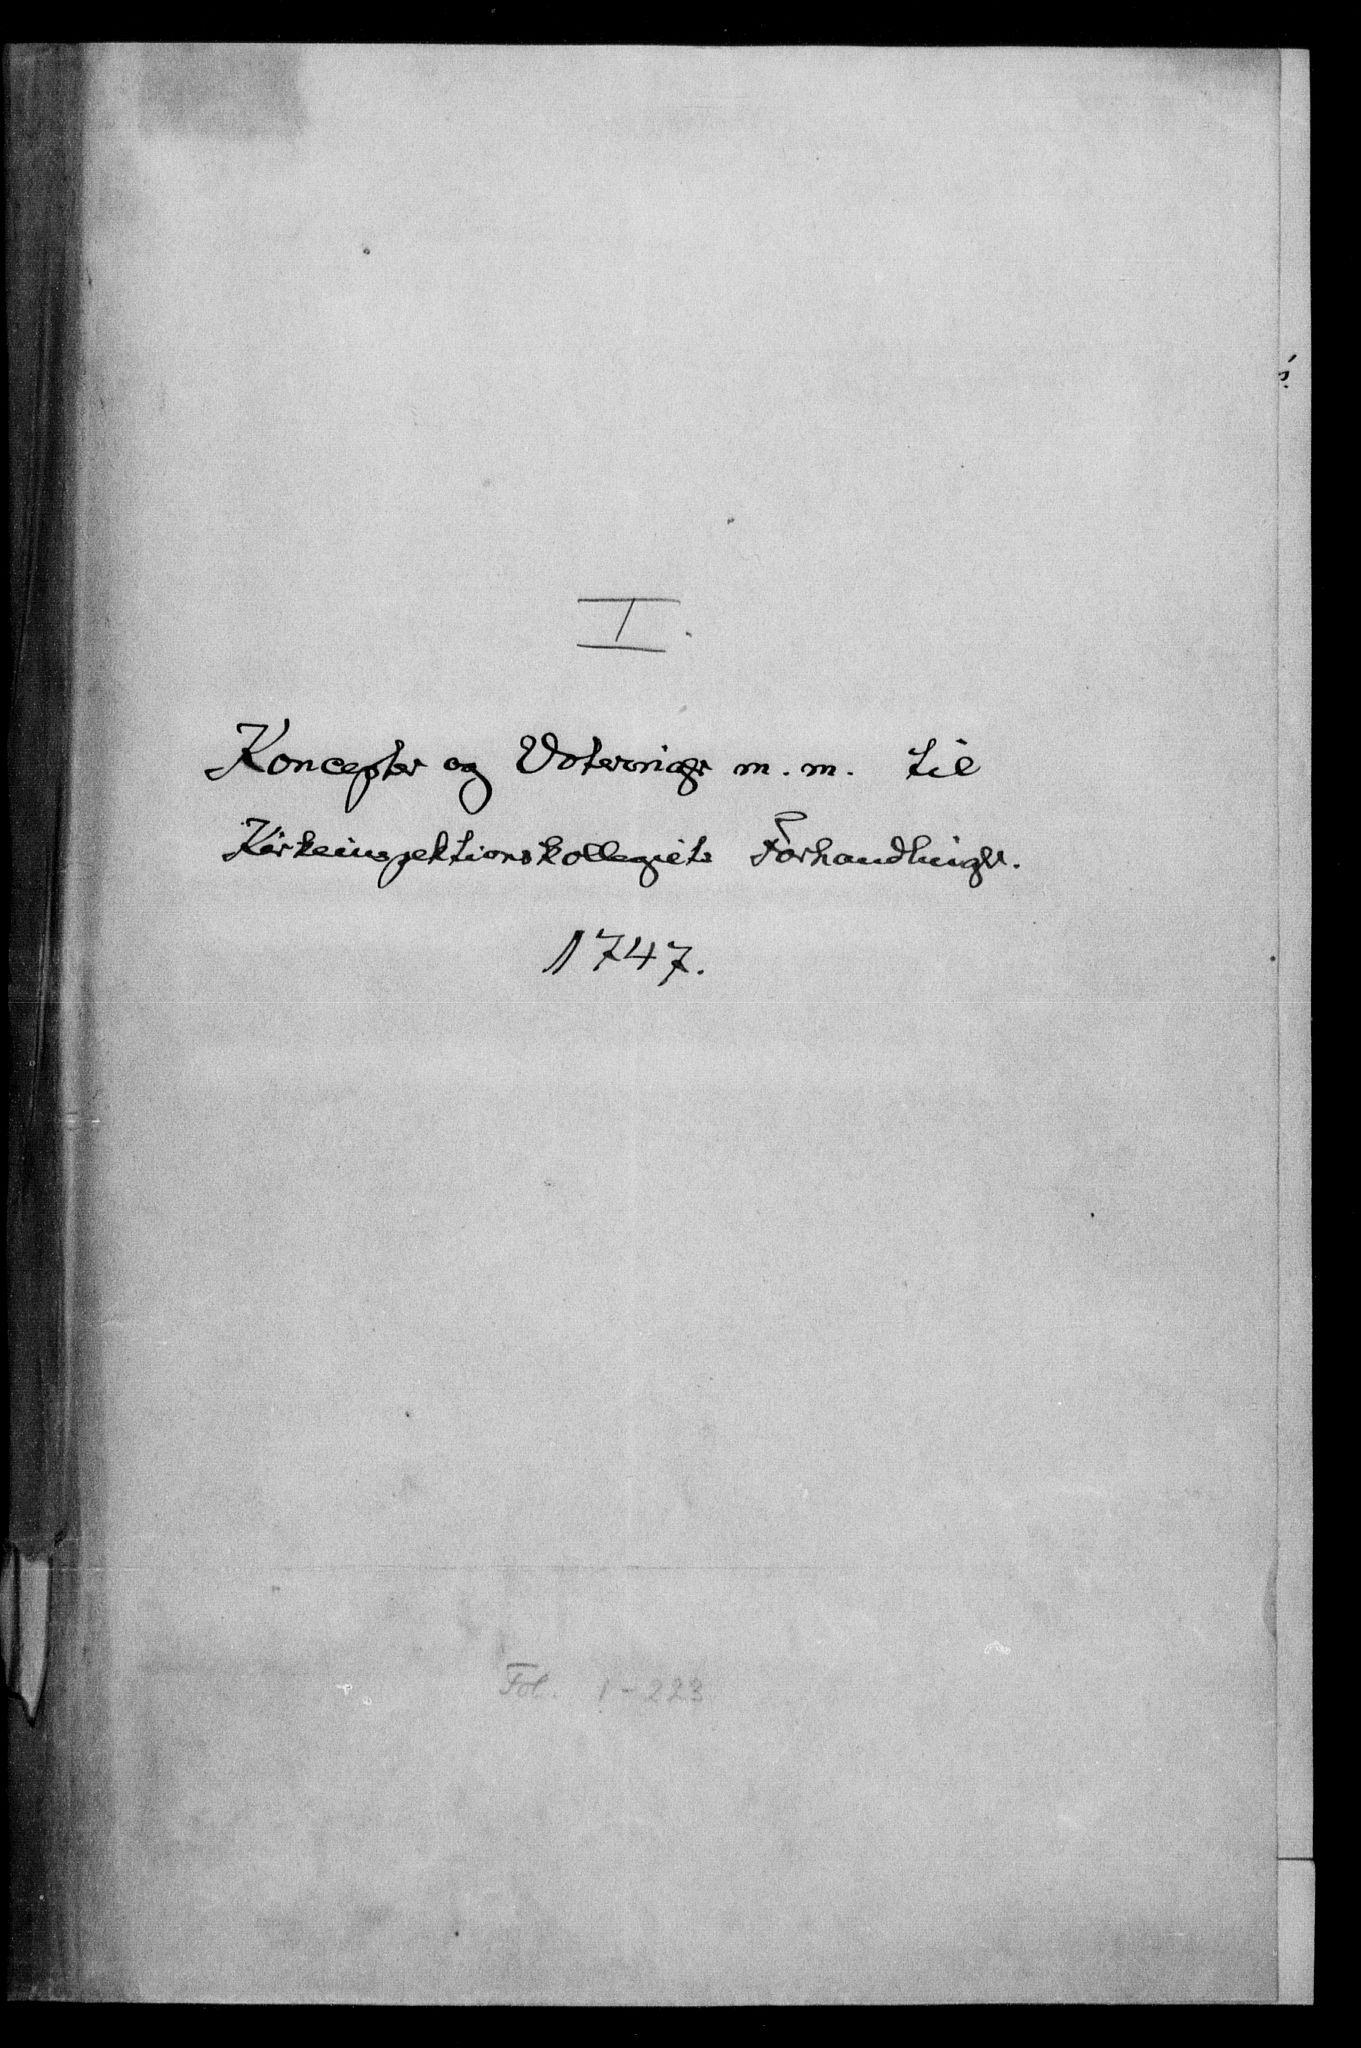 I.
Koncepter og Voteringer m. m. til
Kirkeinspektionskollegiets Forhandlinger.
1747.
Fol. 1-223